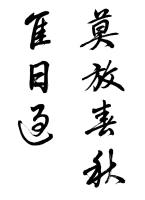 莫放春秋
佳日過